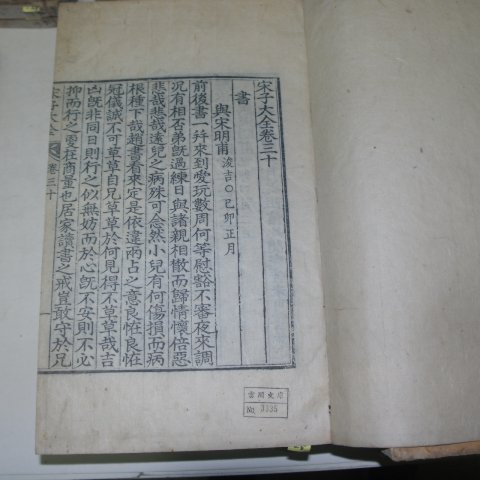 宋子大全卷三十
書
與宋明甫 浚吉○己卯正月
前後書一幷來到愛玩數周何等慰豁不審夜來調
況有相否弟旣過練日與諸親相散而歸情懷倍惡
悲哉悲哉遠兒之病殊可念然小兒有何傷損而病
根種下哉趙書看來定是依違兩占之意良恠良恠
冠儀誠不可草草自兄草草於何見得不草草哉吉
凶旣非同日則行之似無妨而於心旣不安則不必
抑而行之更在商量也居家讀書之戒豈敢守於兄
宋子大全 卷三十
No. 3135